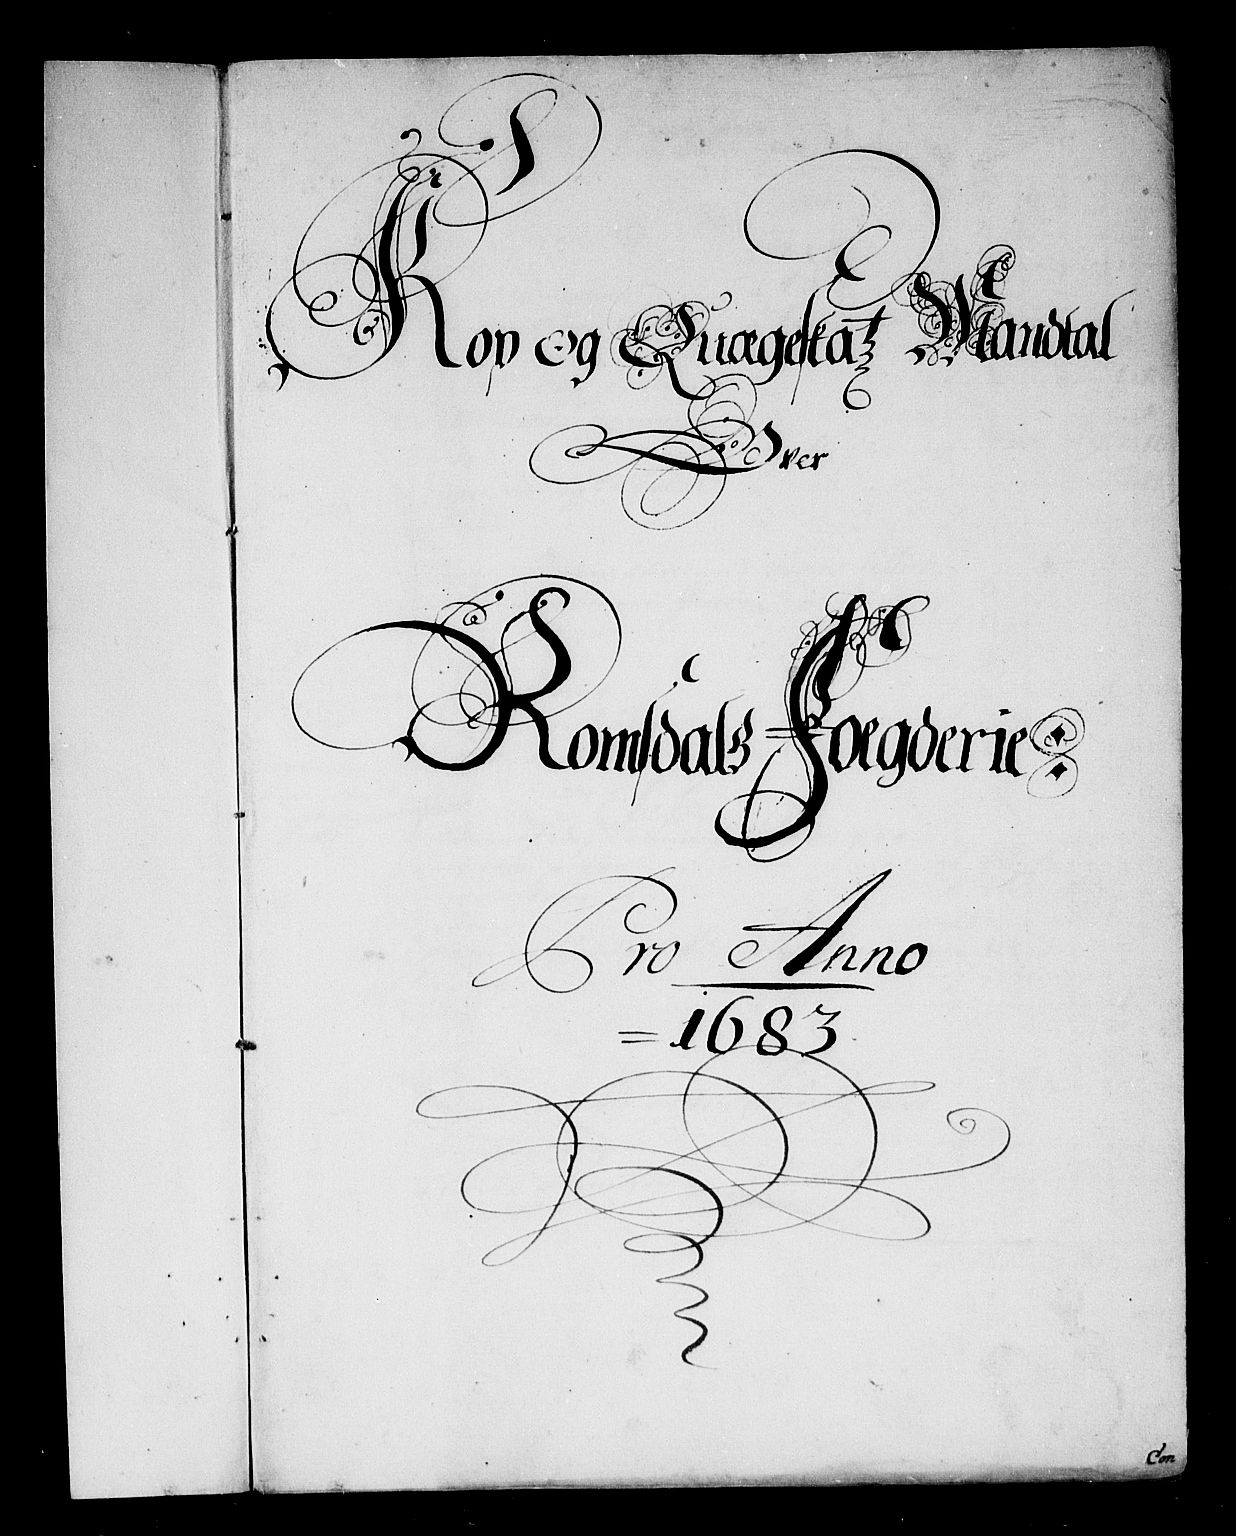 Kop og Quægskatz Mandtal
Over
Romsdals Foegderie
Pro Anno
= 1683
Con